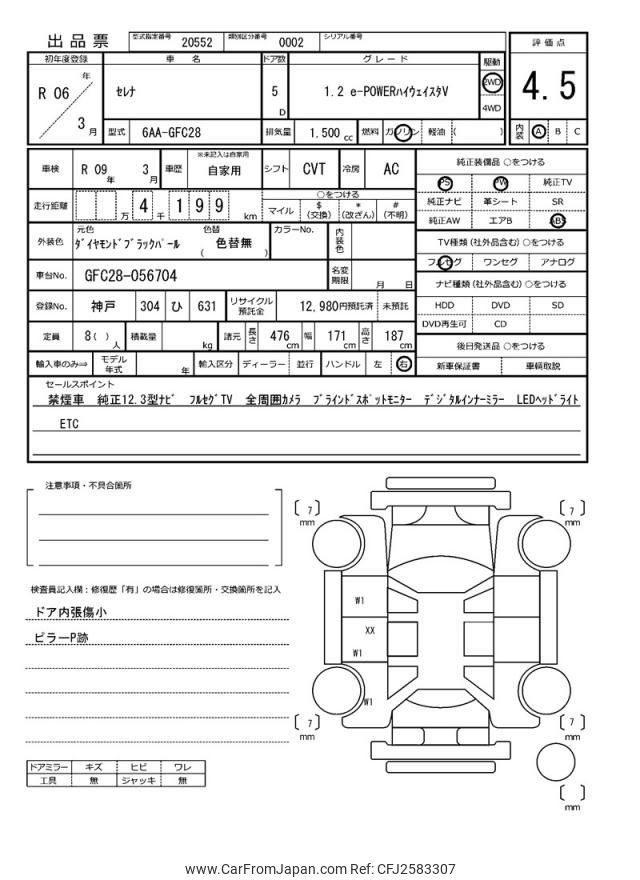 出品票 型式指定番号 20552 類別区分番号 0002 シリアル番号
評価点
4.5
内装 A B C
初年度登録 車名 ドア数 グレード 駆動
R 06 年 3 月
セレナ 5 D 1.2 e-POWERハイウェイスタV 2WD 4WD
型式 6AA-GFC28 排気量 1.500 cc 燃料 ガソリン 軽油 ( )
車検 R 09 年 3 月 車歴 ※未記入は自家用 自家用 シフト CVT 冷房 AC
走行距離 万 4 千 1 9 9 km
○をつける
マイル $(交換) *(改ざん) #(不明)
外装色 元色 ダイヤモンドブラックパール 色替 ( 色替無 ) カラーNo. 内装色
車台No. GFC28-056704 名変期限 月 日
登録No. 神戸 304 ひ 631 リサイクル預託金 12,980円預託済 未預託
定員 8( ) 人 積載量 kg 諸元 長さ 476 cm 幅 171 cm 高さ 187 cm
輸入車のみ⇒ モデル年式 年 輸入区分 ディーラー 並行 ハンドル 左 右
純正装備品 ○をつける
PS PW 純正TV
純正ナビ 革シート SR
純正AW エアB ABS
TV種類(社外品含む) ○をつける
フルセグ ワンセグ アナログ
ナビ種類(社外品含む) ○をつける
HDD DVD SD
DVD再生可 CD
後日発送品 ○をつける
新車保証書 車輌取説
セールスポイント
禁煙車 純正12.3型ナビ フルセグTV 全周囲カメラ ブラインドスポットモニター デジタルインナーミラー LEDヘッドライト
ETC
注意事項・不具合箇所
検査員記入欄：修復歴「有」の場合は修復箇所・交換箇所を記入
ドア内張傷小
ピラーP跡
ドアミラー キズ ヒビ ワレ
工具 無 ジャッキ 無
7 mm
7 mm
W1
XX
W1
W1
7 mm
7 mm
mm
www.CarFromJapan.com Ref: CFJ2583307